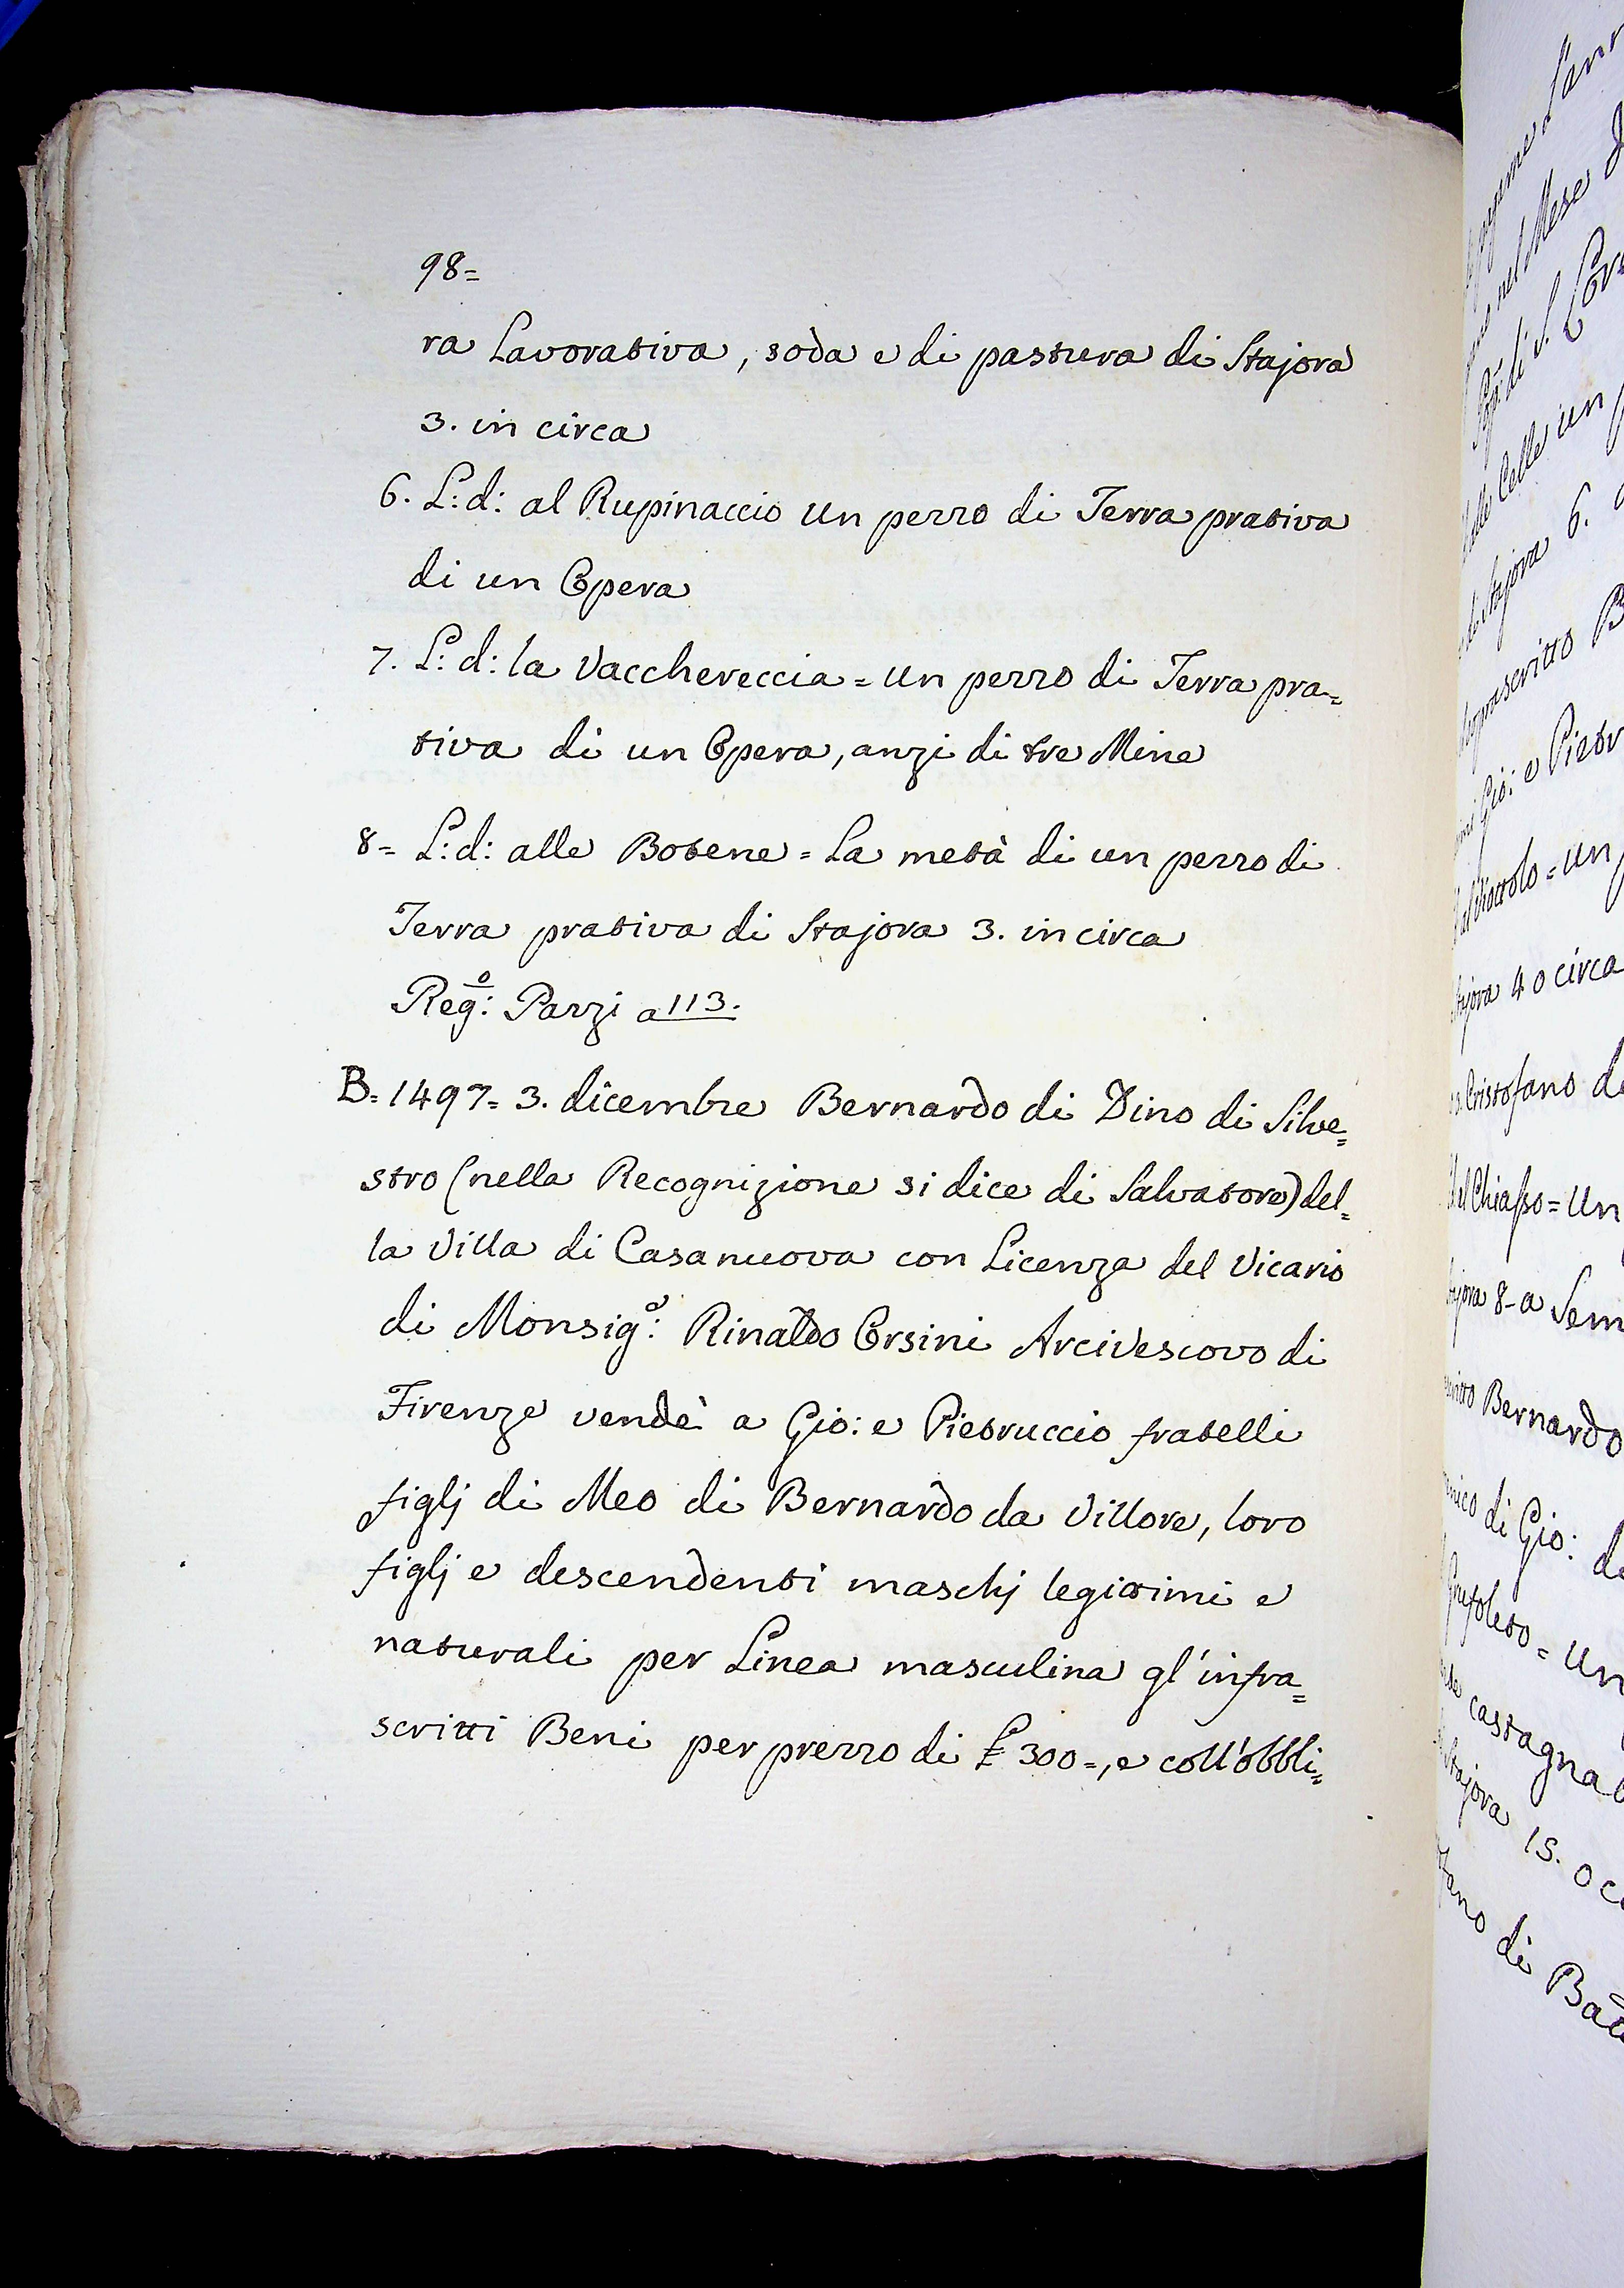 98=
ra Lavorativa, soda e di pastura di Stajora
3. in circa
6. L: d: al Rupinaccio un pezzo di Terra prativa
di un Opera
7. L: d: la Vacchereccia = un pezzo di Terra pra=
tiva di un Opera, anzi di tre Mine
8= L: d: alle Botene = La metà di un pezzo di
Terra prativa di Stajora 3. in circa
Reg:o Pazzi a 113.
B. 1497= 3. dicembre Bernardo di Dino di Silve=
stro (nella Recognizione si dice di Salvatore) del=
la Villa di Casanuova con Licenza del Vicario
di Monsig:e Rinaldo Orsini Arcivescovo di
Firenze vendè a Gio: e Pietruccio fratelli
figlj di Meo di Bernardo da Villore, loro
figlj e descendenti maschj legittimi e
naturali per Linea masculina gl'infra=
scritti Beni per prezzo di £ 300=, e coll'obbli=
nel Mese
di S.
Celle un
Stajora 6.
soprascritto B
Gio: e Pietr
Viottolo = un
Stajora 40 circa
Cristofano de
del Chiasso = un
Stajora 8- a Sem
Bernardo
di Gio: de
= un
castagna
Stajora 15. o c
di Batt